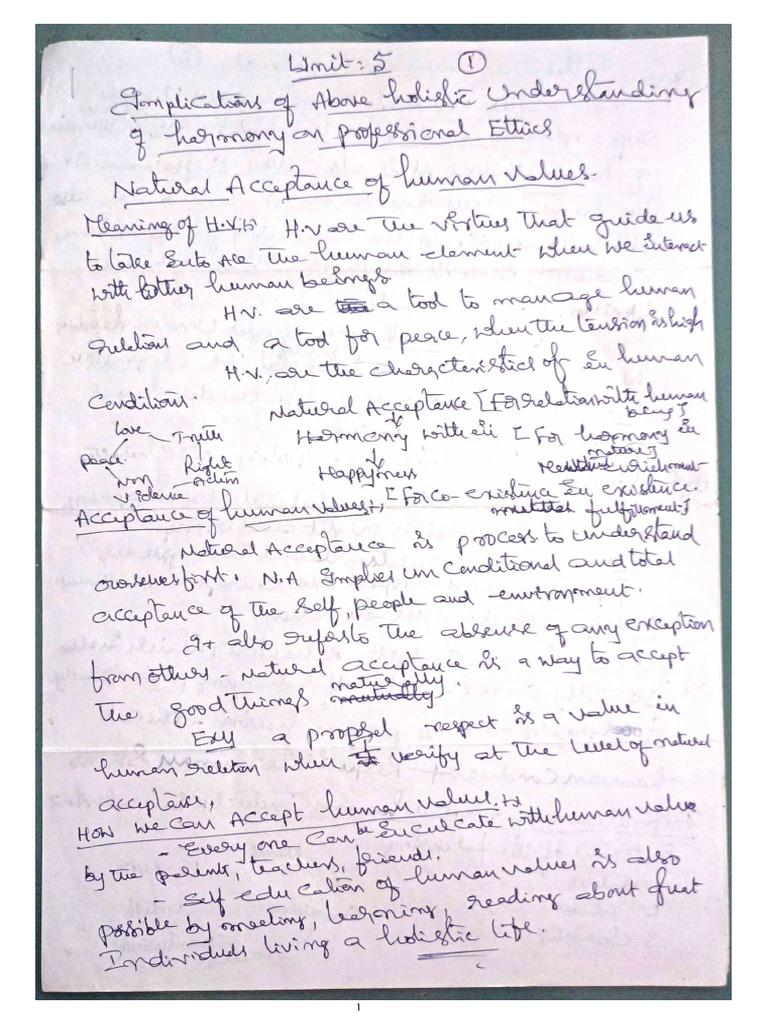 Unit: 5 ①
Implications of Above holistic Understanding
of harmony on professional Ethics
Natural Acceptance of human values.
Meaning of H.V.:> H.V are the virtues that guide us
to take into the human element when we interact
with other human beings.
H.V. are a tool to manage human
relations and a tool for peace, when the tension is high
H.V., are the characteristics of in human
Conditions.
Natural Acceptance [For relation with human
being]
Love
Truth
Harmony with in [For harmony in
nature]
peace
Right
Action
Non
violence
Happyness
[For co-existince in existence
fulfillment]
Acceptance of human values:>
Natural Acceptance is process to understand
ourselves first. N.A Implies un conditional and total
acceptance of the self, people and environment.
It also refers to the absence of any exception
from others. Natural acceptance is a way to accept
the good things naturally.
Ex:// a proposel respect is a value in
human reletion when I verify at the level of natural
acceptance.
HOW we can Accept human values:>
- Every one can be Inculcate with human value
by the perents, teachers, friends.
- Self education of human values is also
possible by meeting, learning, reading about great
Individuals living a holistic life.
1